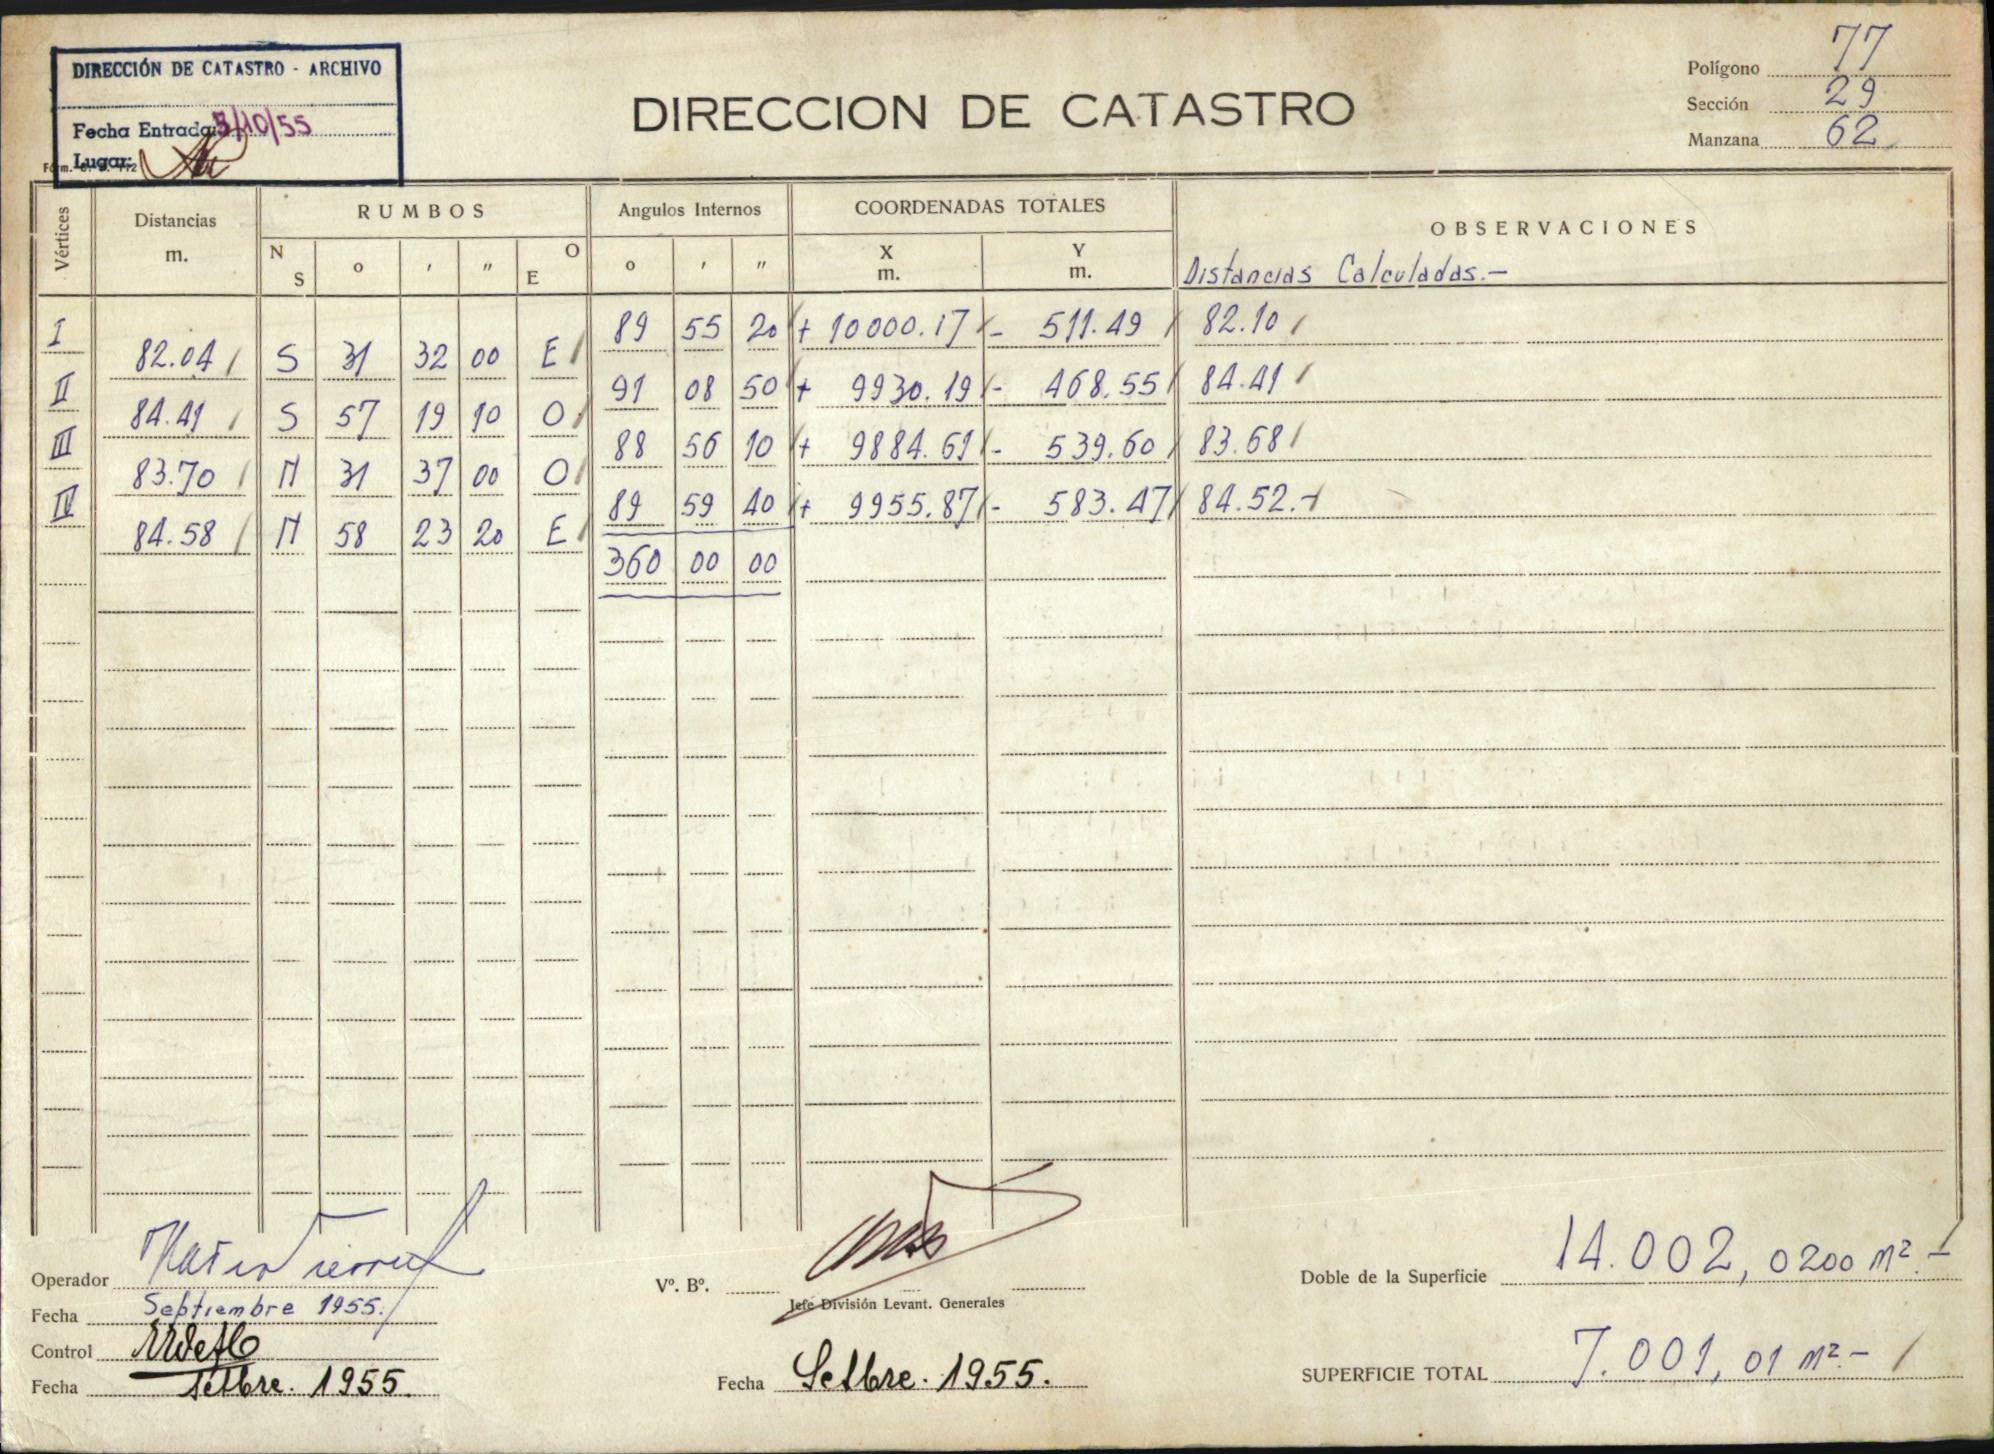 DIRECCIÓN DE CATASTRO - ARCHIVO
Fecha Entrada: 5/10/55
Lugar:
DIRECCION DE CATASTRO
Polígono 77
Sección 29
Manzana 62
Vértices
Distancias m.
RUMBOS
N S o ' " O E
Angulos Internos
o ' "
COORDENADAS TOTALES
X m. Y m.
OBSERVACIONES
Distancias Calculadas.-
I 89 55 20 + 10000.17 - 511.49 82.10
82.04 S 31 32 00 E
II 91 08 50 + 9930.19 - 468.55 84.41
84.41 S 57 19 10 O
III 88 56 10 + 9884.61 - 539.60 83.68
83.70 N 31 37 00 O
IV 89 59 40 + 9955.87 - 583.47 84.52.-
84.58 N 58 23 20 E
360 00 00
Operador
Fecha Septiembre 1955.
Control
Fecha Setbre. 1955.
Vº. Bº.
Jefe División Levant. Generales
Fecha Setbre. 1955.
Doble de la Superficie 14.002,0200 m².-
SUPERFICIE TOTAL 7.001,01 m².-